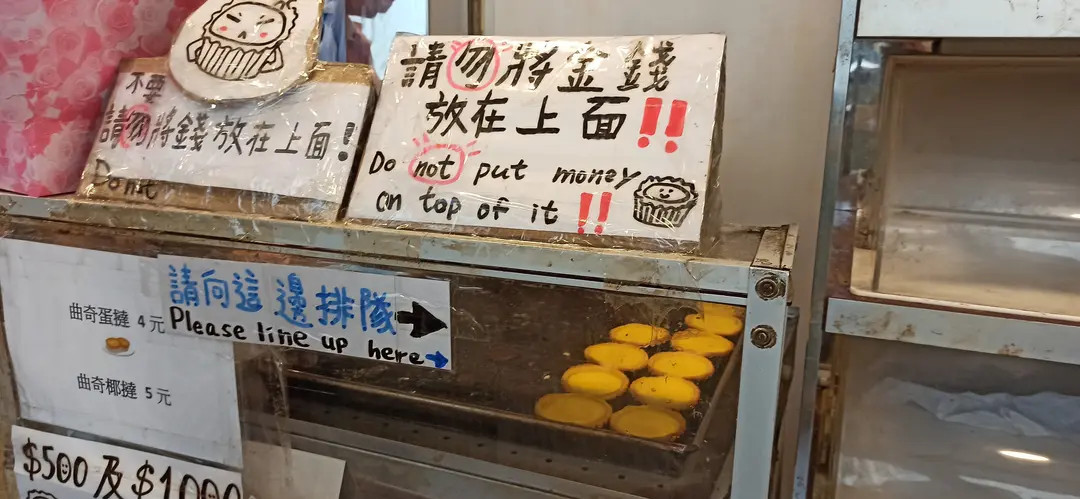 不要
請勿將錢放在上面!
Do not
請勿將金錢
放在上面!!
Do not put money
on top of it !!
請向這邊排隊
Please line up here
曲奇蛋撻 4元
曲奇椰撻 5元
$500及$1000